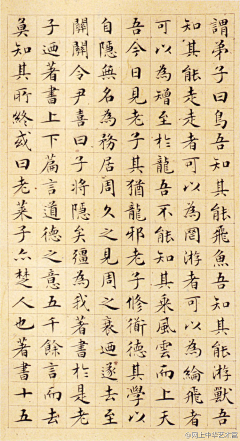 謂弟子曰鳥吾知其能飛魚吾知其能游獸吾
知其能走走者可以為罔游者可以為綸飛者
可以為矰至於龍吾不能知其乘風雲而上天
吾今日見老子其猶龍邪老子修衟德其學以
自隱無名為務居周久之見周之衰迺遂去至
關關令尹喜曰子將隱矣彊為我著書於是老
子迺著書上下篇言道德之意五千餘言而去
莫知其所終或曰老萊子亦楚人也著書十五
@网上中华艺术馆